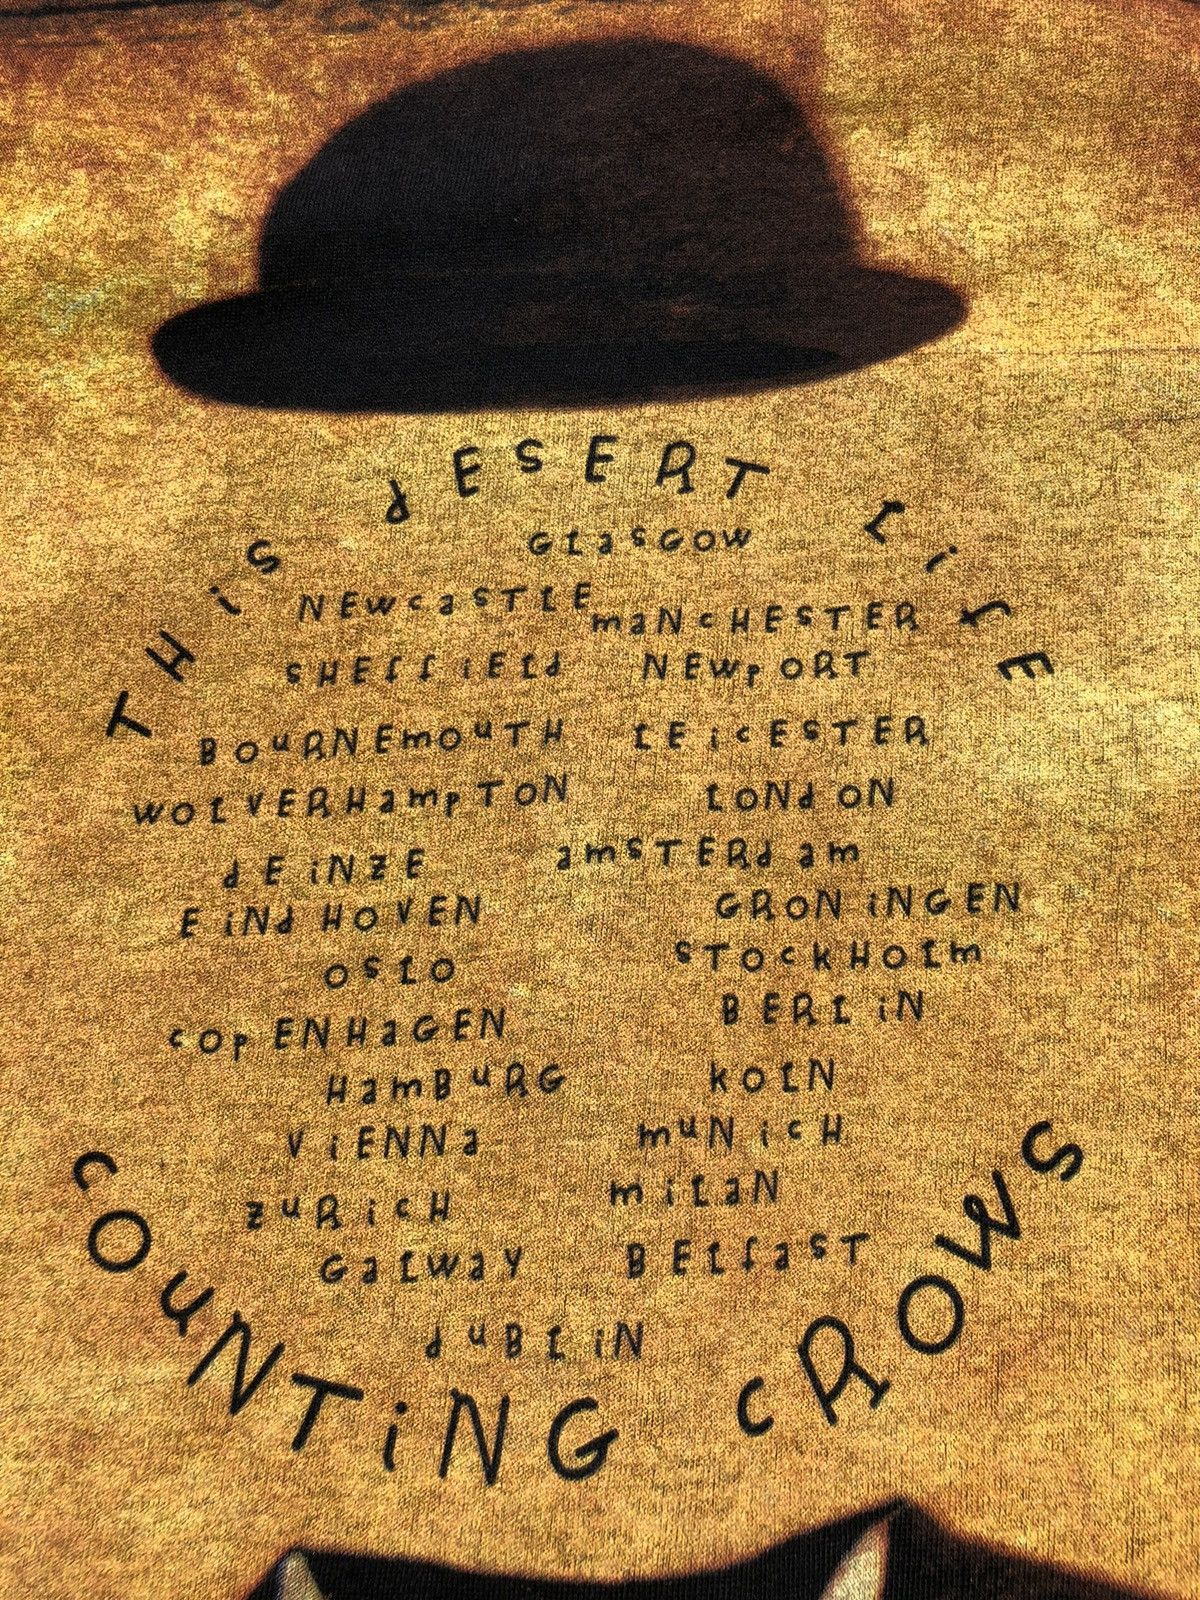 THis dESERT LifE
GLasGOW
NEwcasTLE maNcHESTER
sHEffiELd NEwpORT
BOuRNEmOuTH LEicESTER
wOLVERHampTON LONdON
dEiNZE amsTERdam
EiNdHOVEN GRONiNGEN
OsLO sTOckHOLm
cOpENHaGEN BERLiN
HamBuRG kOLN
ViENNa muNicH
ZuRicH miLaN
GaLwaY BELfasT
duBLiN
cOuNTiNG cROws